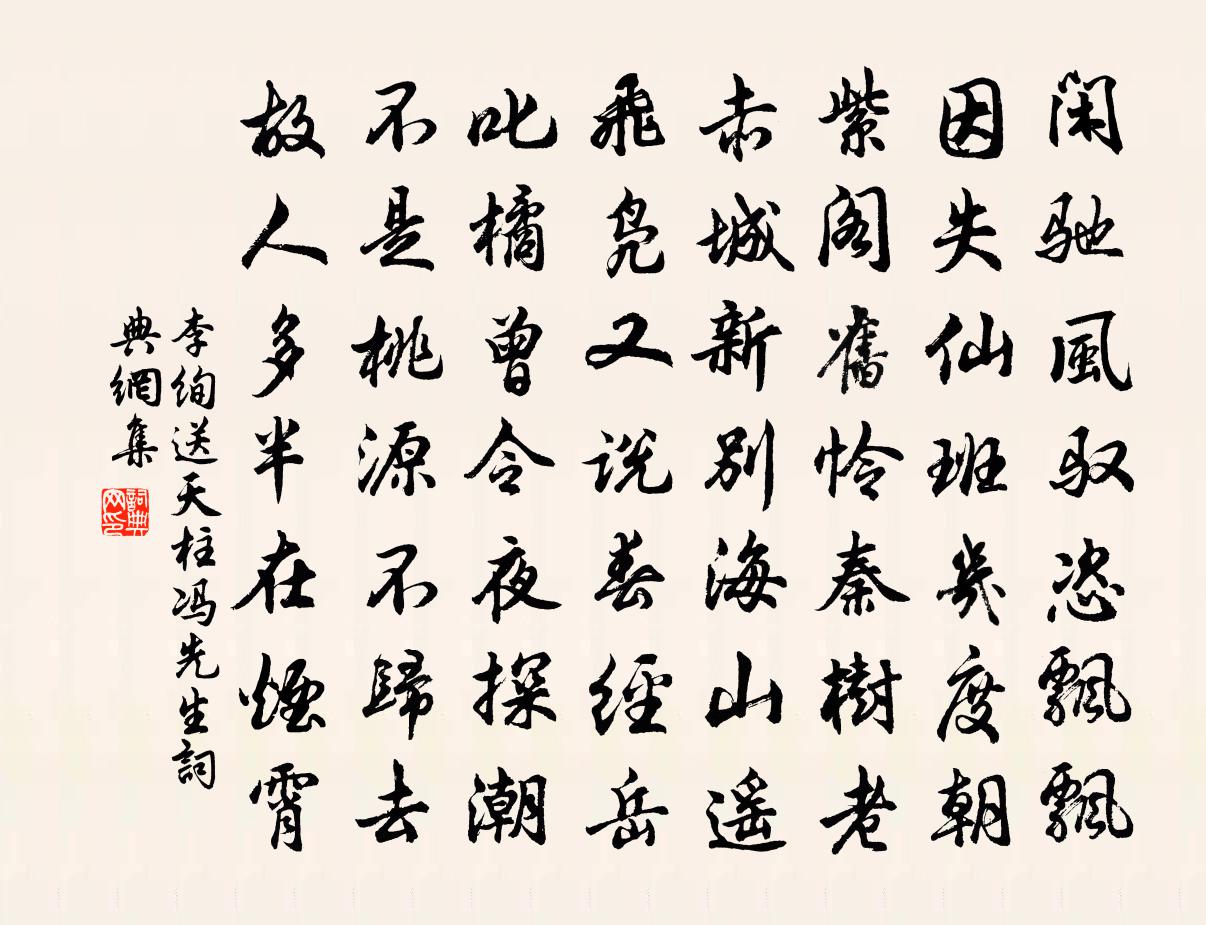 閑驰風驭恣飄飄
因失仙班幾度朝
紫阁舊怜秦樹老
赤城新别海山遥
飛凫又説春經岳
叱橘曾令夜探潮
不是桃源不歸去
故人多半在煙霄
李绚送天柱冯先生詞
典網集
詞典网印